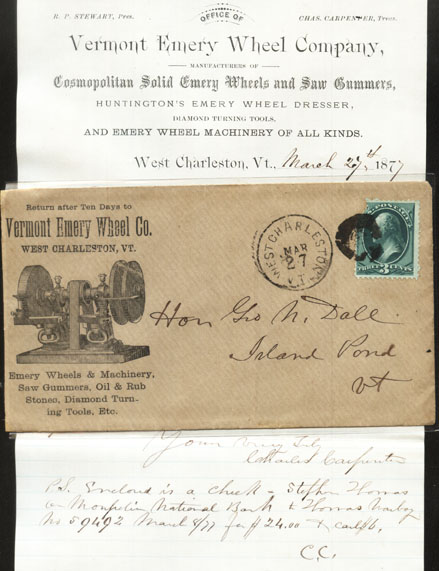 R. P. STEWART, Pres.
OFFICE OF
CHAS. CARPENTER, Treas.
Vermont Emery Wheel Company,
MANUFACTURERS OF
Cosmopolitan Solid Emery Wheels and Saw Gummers,
HUNTINGTON'S EMERY WHEEL DRESSER,
DIAMOND TURNING TOOLS,
AND EMERY WHEEL MACHINERY OF ALL KINDS.
West Charleston, Vt., March 27th 1877
Return after Ten Days to
Vermont Emery Wheel Co.
WEST CHARLESTON, VT.
WEST CHARLESTON
MAR
27
VT
POSTAGE
THREE 3 CENTS
Hon Geo N. Dale
Island Pond
Vt
Emery Wheels & Machinery,
Saw Gummers, Oil & Rub
Stones, Diamond Turn-
ing Tools, Etc.
Yours Very Truly
Charles Carpenter
P.S. Enclosed is a check - Stephen Thomas
on Montpelier National Bank & Thomas
No 59492 March 8/77 for $24.00
C.C.